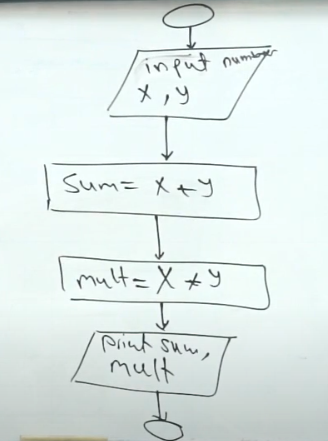 input number
X, y
Sum= X + y
mult= X * y
print sum,
mult